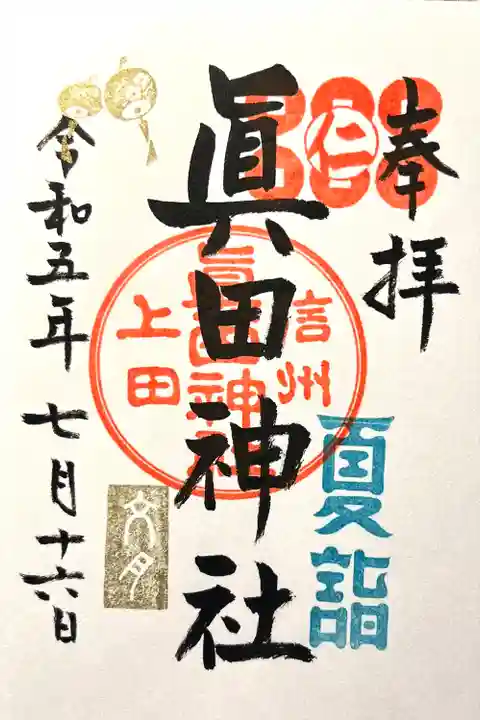 奉拝
仁
夏詣
眞田神社
信州
眞田神社
上田
文月
令和五年 七月十六日